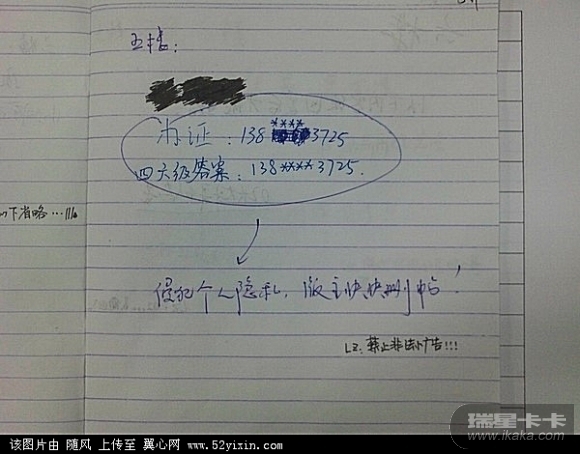 五楼:
办证:138****3725
四六级答案:138****3725.
以下省略…111a
侵犯个人隐私,版主快快删帖!
LZ:禁止非法广告!!!
瑞星卡卡
www.ikaka.com
该图片由 随风 上传至 翼心网 www.52yixin.com